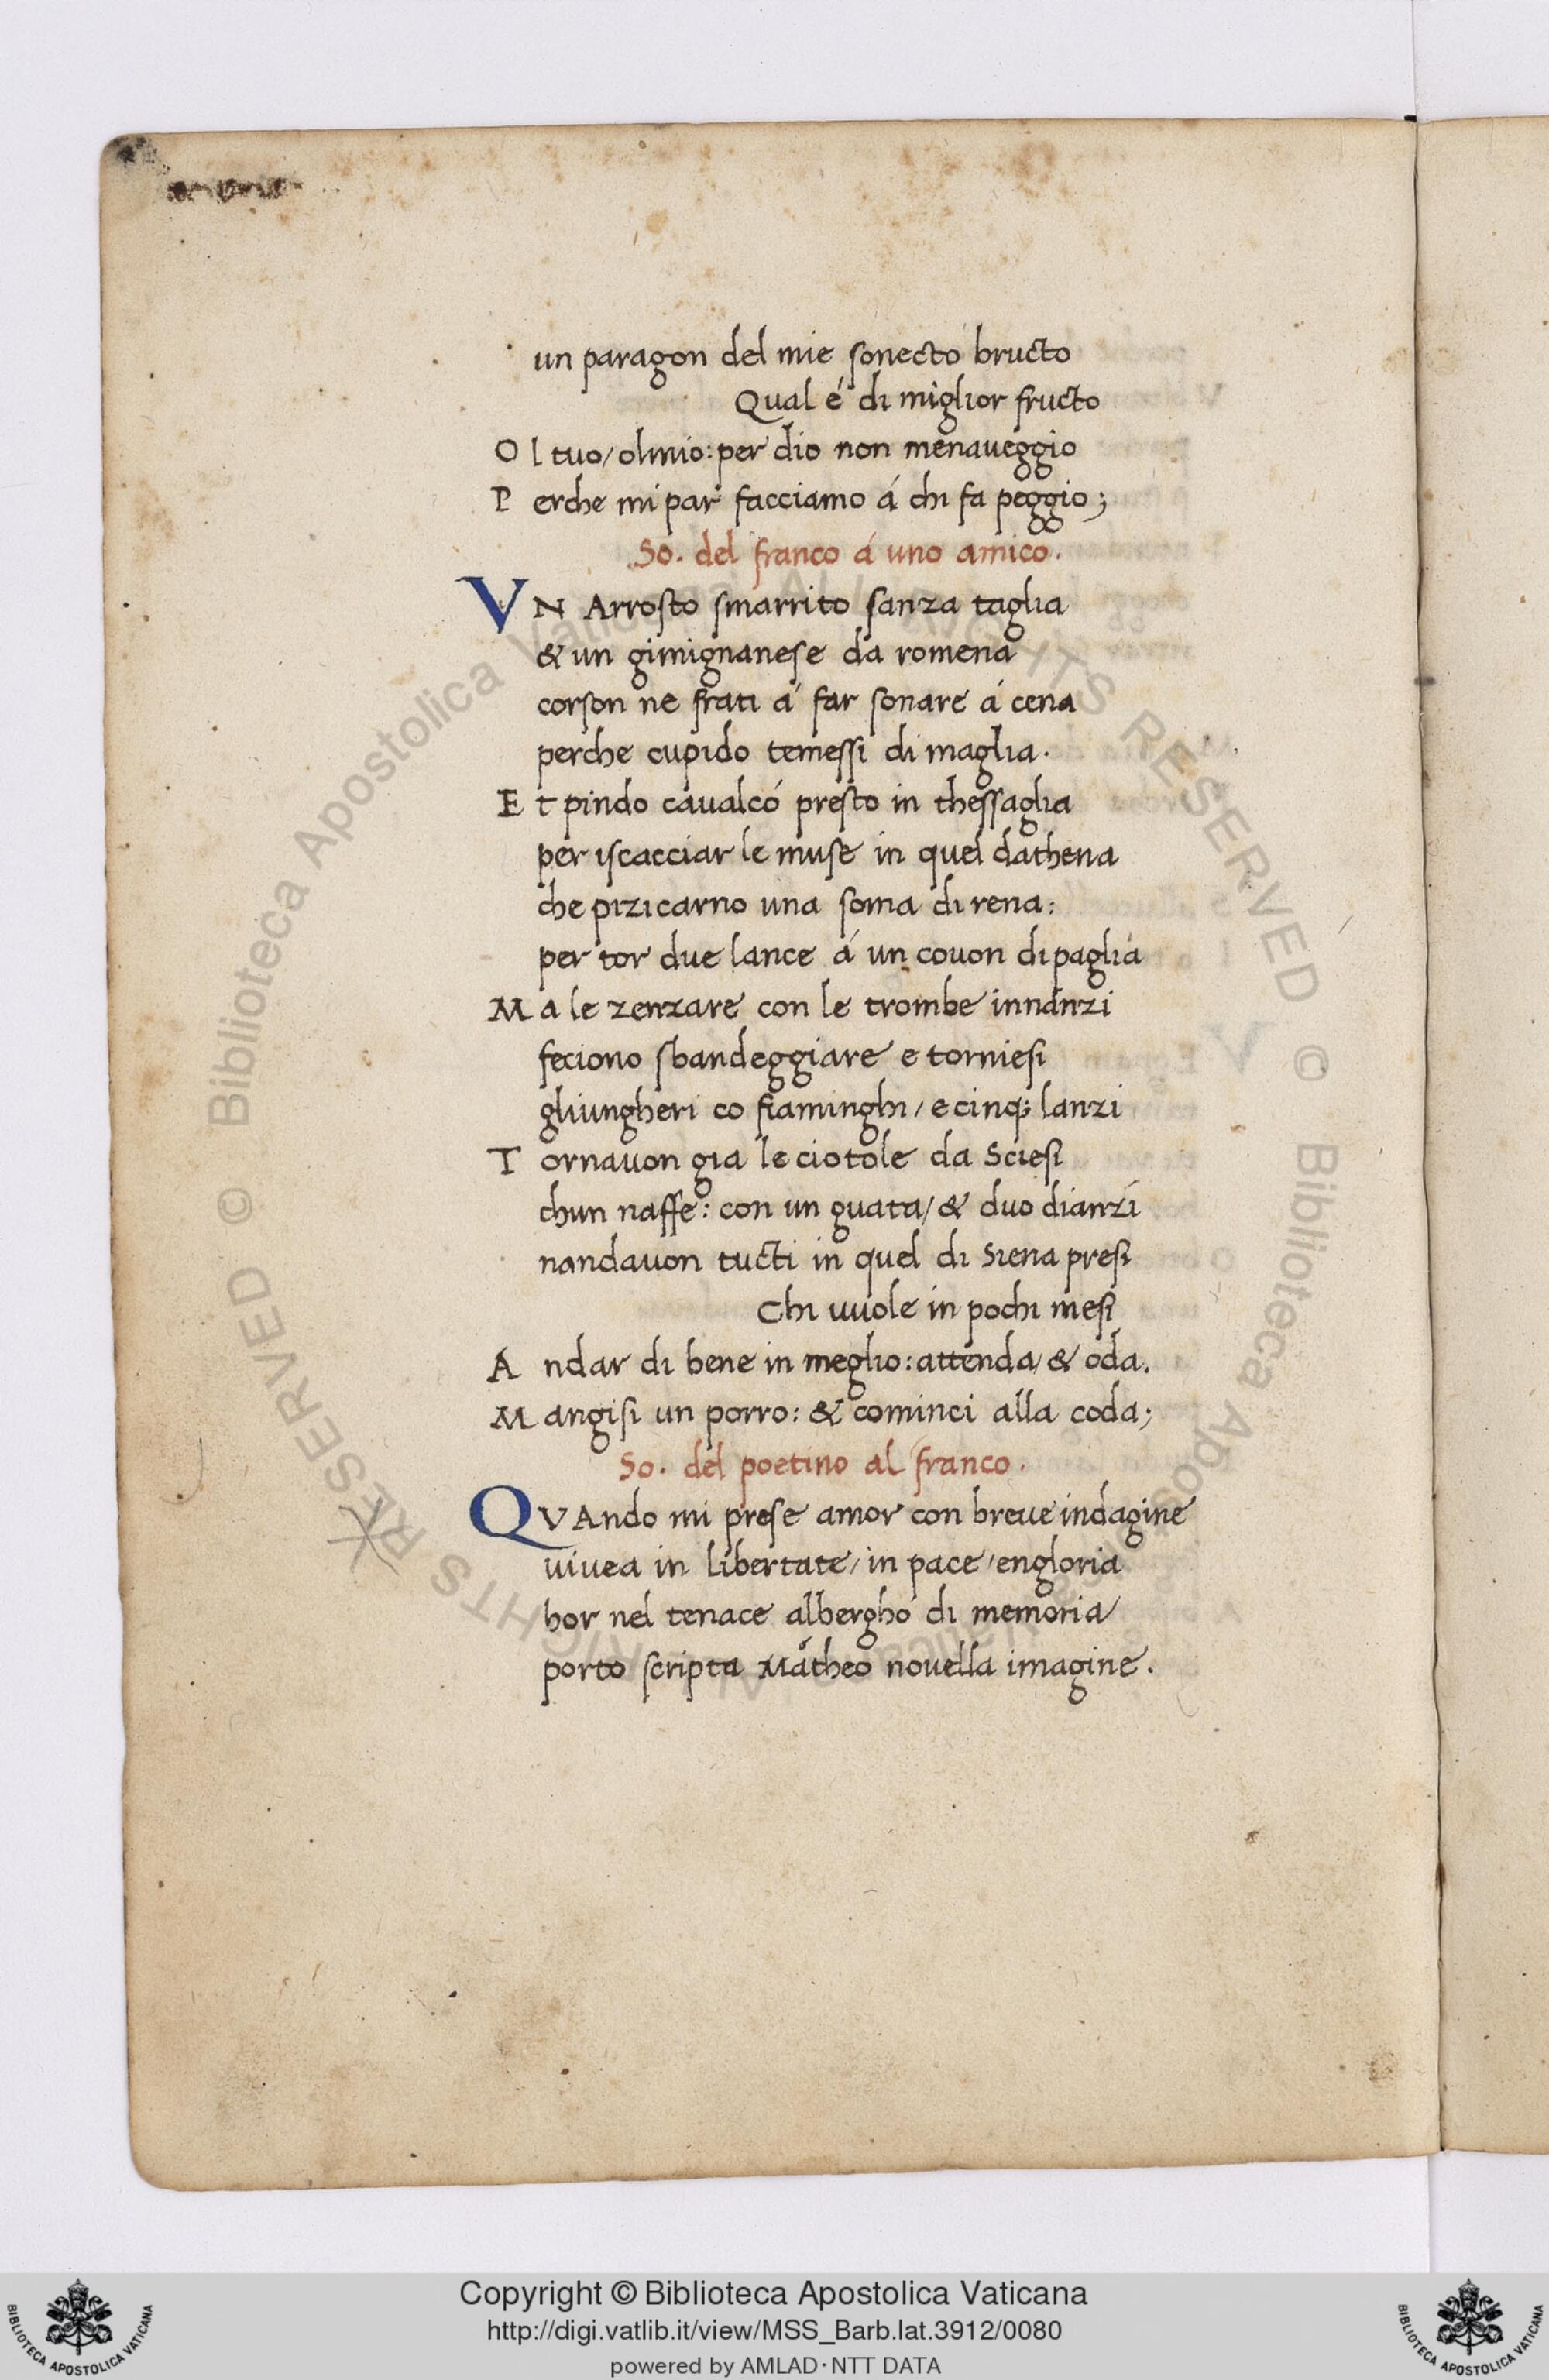 un paragon del mie sonecto bructo
Qual é di miglior fructo
O l tuo/ olmio: per dio non menaveggio
P erche mi par facciamo á chi fa peggio;
So. del franco á uno amico.
VN Arrosto smarrito sanza taglia
& un gimignanese da romena
corson ne frati á far sonare á cena
perche cupido temessi di maglia.
E t pindo caualcó presto in thessaglia
per iscacciar le muse in quel dathena
che pizicarno una soma di rena:
per tor due lance á un couon di paglia
M a le zenzare con le trombe innanzi
feciono sbandeggiare e torniesi
gliungheri co fiaminghi/ e cinq; lanzi
T ornauon gia le ciotole da Sciesi
chun naffe: con un guata/ & duo dianzi
nandauon tucti in quel di Siena presi
Chi uuole in pochi mesi
A ndar di bene in meglio: attenda/ & oda.
M angisi un porro: & cominci alla coda;
So. del poetino al franco.
QVAndo mi prese amor con breue indagine
uiuea in libertate/ in pace/ engloria
hor nel tenace albergho di memoria/
porto scripta Matheo nouella imagine.
© Biblioteca Apostolica Vaticana ALL RIGHTS RESERVED © Biblioteca Apostolica Vaticana ALL RIGHTS RESERVED
Copyright © Biblioteca Apostolica Vaticana
http://digi.vatlib.it/view/MSS_Barb.lat.3912/0080
powered by AMLAD·NTT DATA
BIBLIOTECA APOSTOLICA VATICANA
BIBLIOTECA APOSTOLICA VATICANA